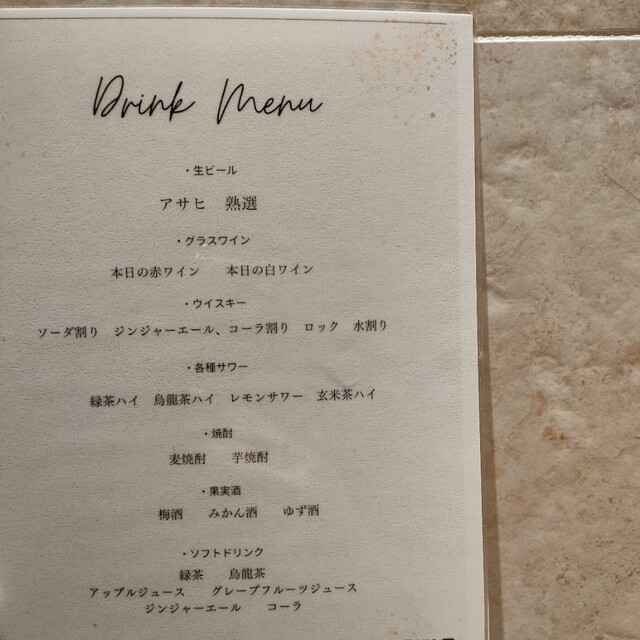 Drink Menu
・生ビール
アサヒ 熟選
・グラスワイン
本日の赤ワイン 本日の白ワイン
・ウイスキー
ソーダ割り ジンジャーエール、コーラ割り ロック 水割り
・各種サワー
緑茶ハイ 烏龍茶ハイ レモンサワー 玄米茶ハイ
・焼酎
麦焼酎 芋焼酎
・果実酒
梅酒 みかん酒 ゆず酒
・ソフトドリンク
緑茶 烏龍茶
アップルジュース グレープフルーツジュース
ジンジャーエール コーラ